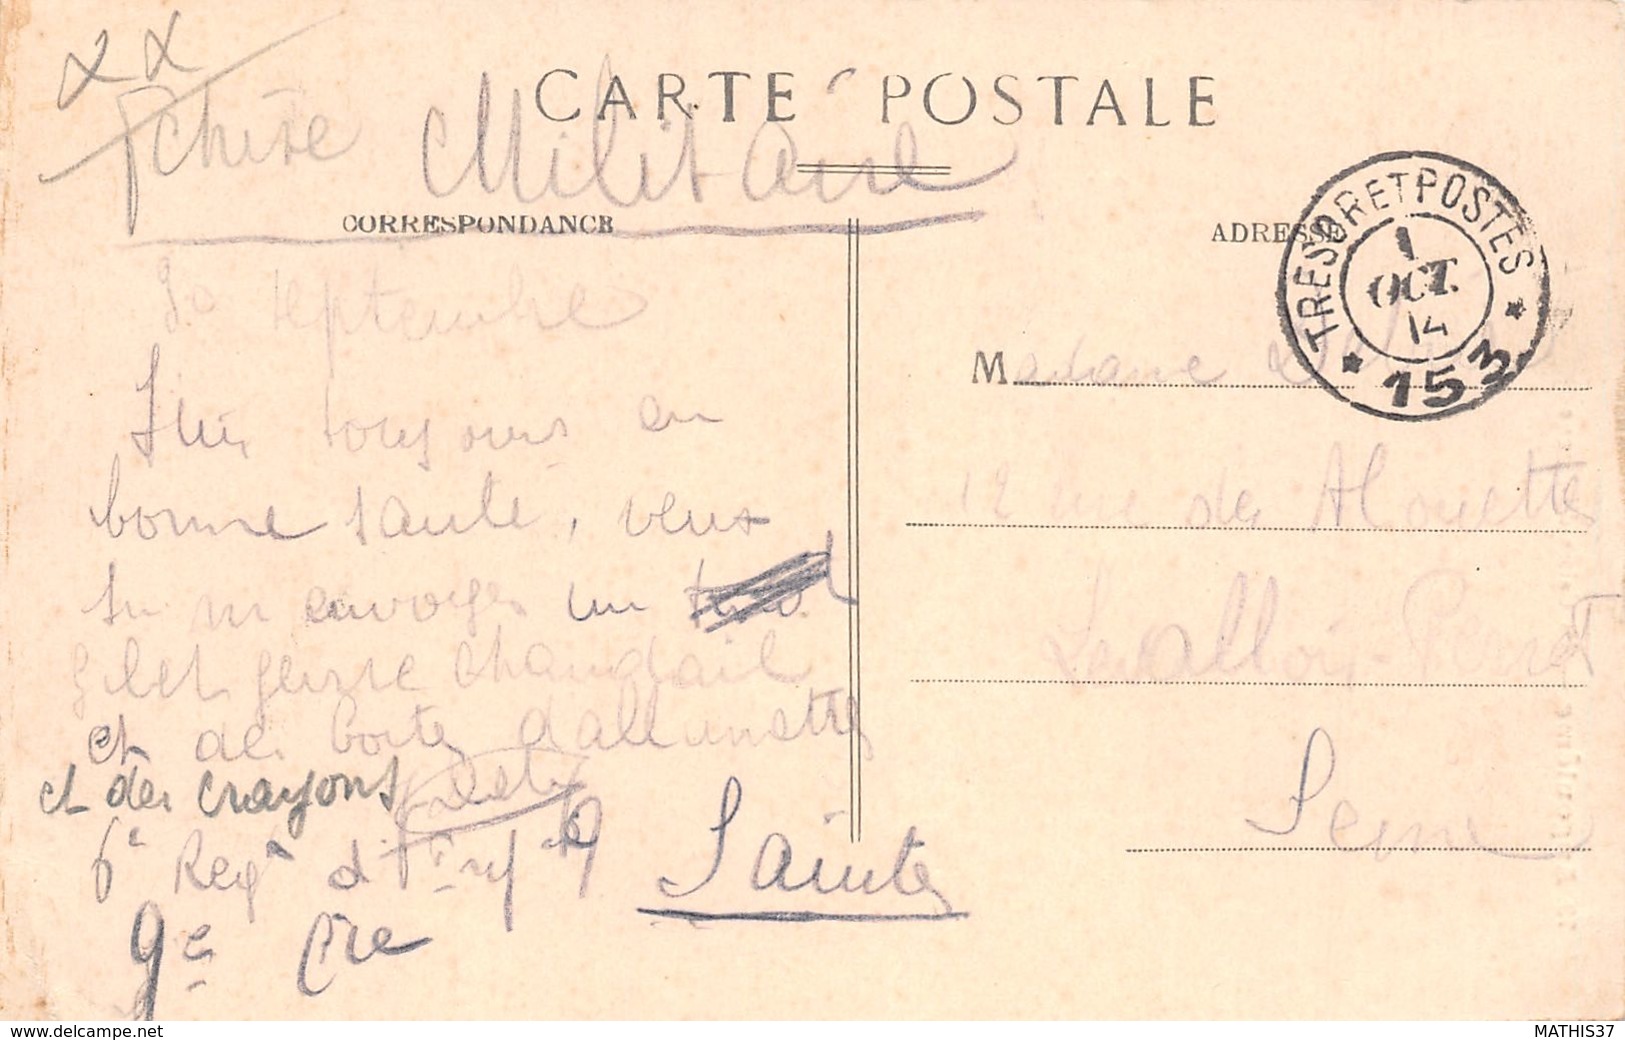 CARTE POSTALE
Militaire
CORRESPONDANCE
ADRESSE
TRESOR ET POSTES
1
OCT.
14
* 153 *
30 septembre
Suis toujours en
bonne santé, veux
tu m envoyer un
gilet genre chandail
et des boites d'allumettes
et des crayons
6e Regt d
9e Cie
Saintes
Madame
12 rue des Alouettes
Levallois-Perret
Seine
www.delcampe.net
MATHIS37